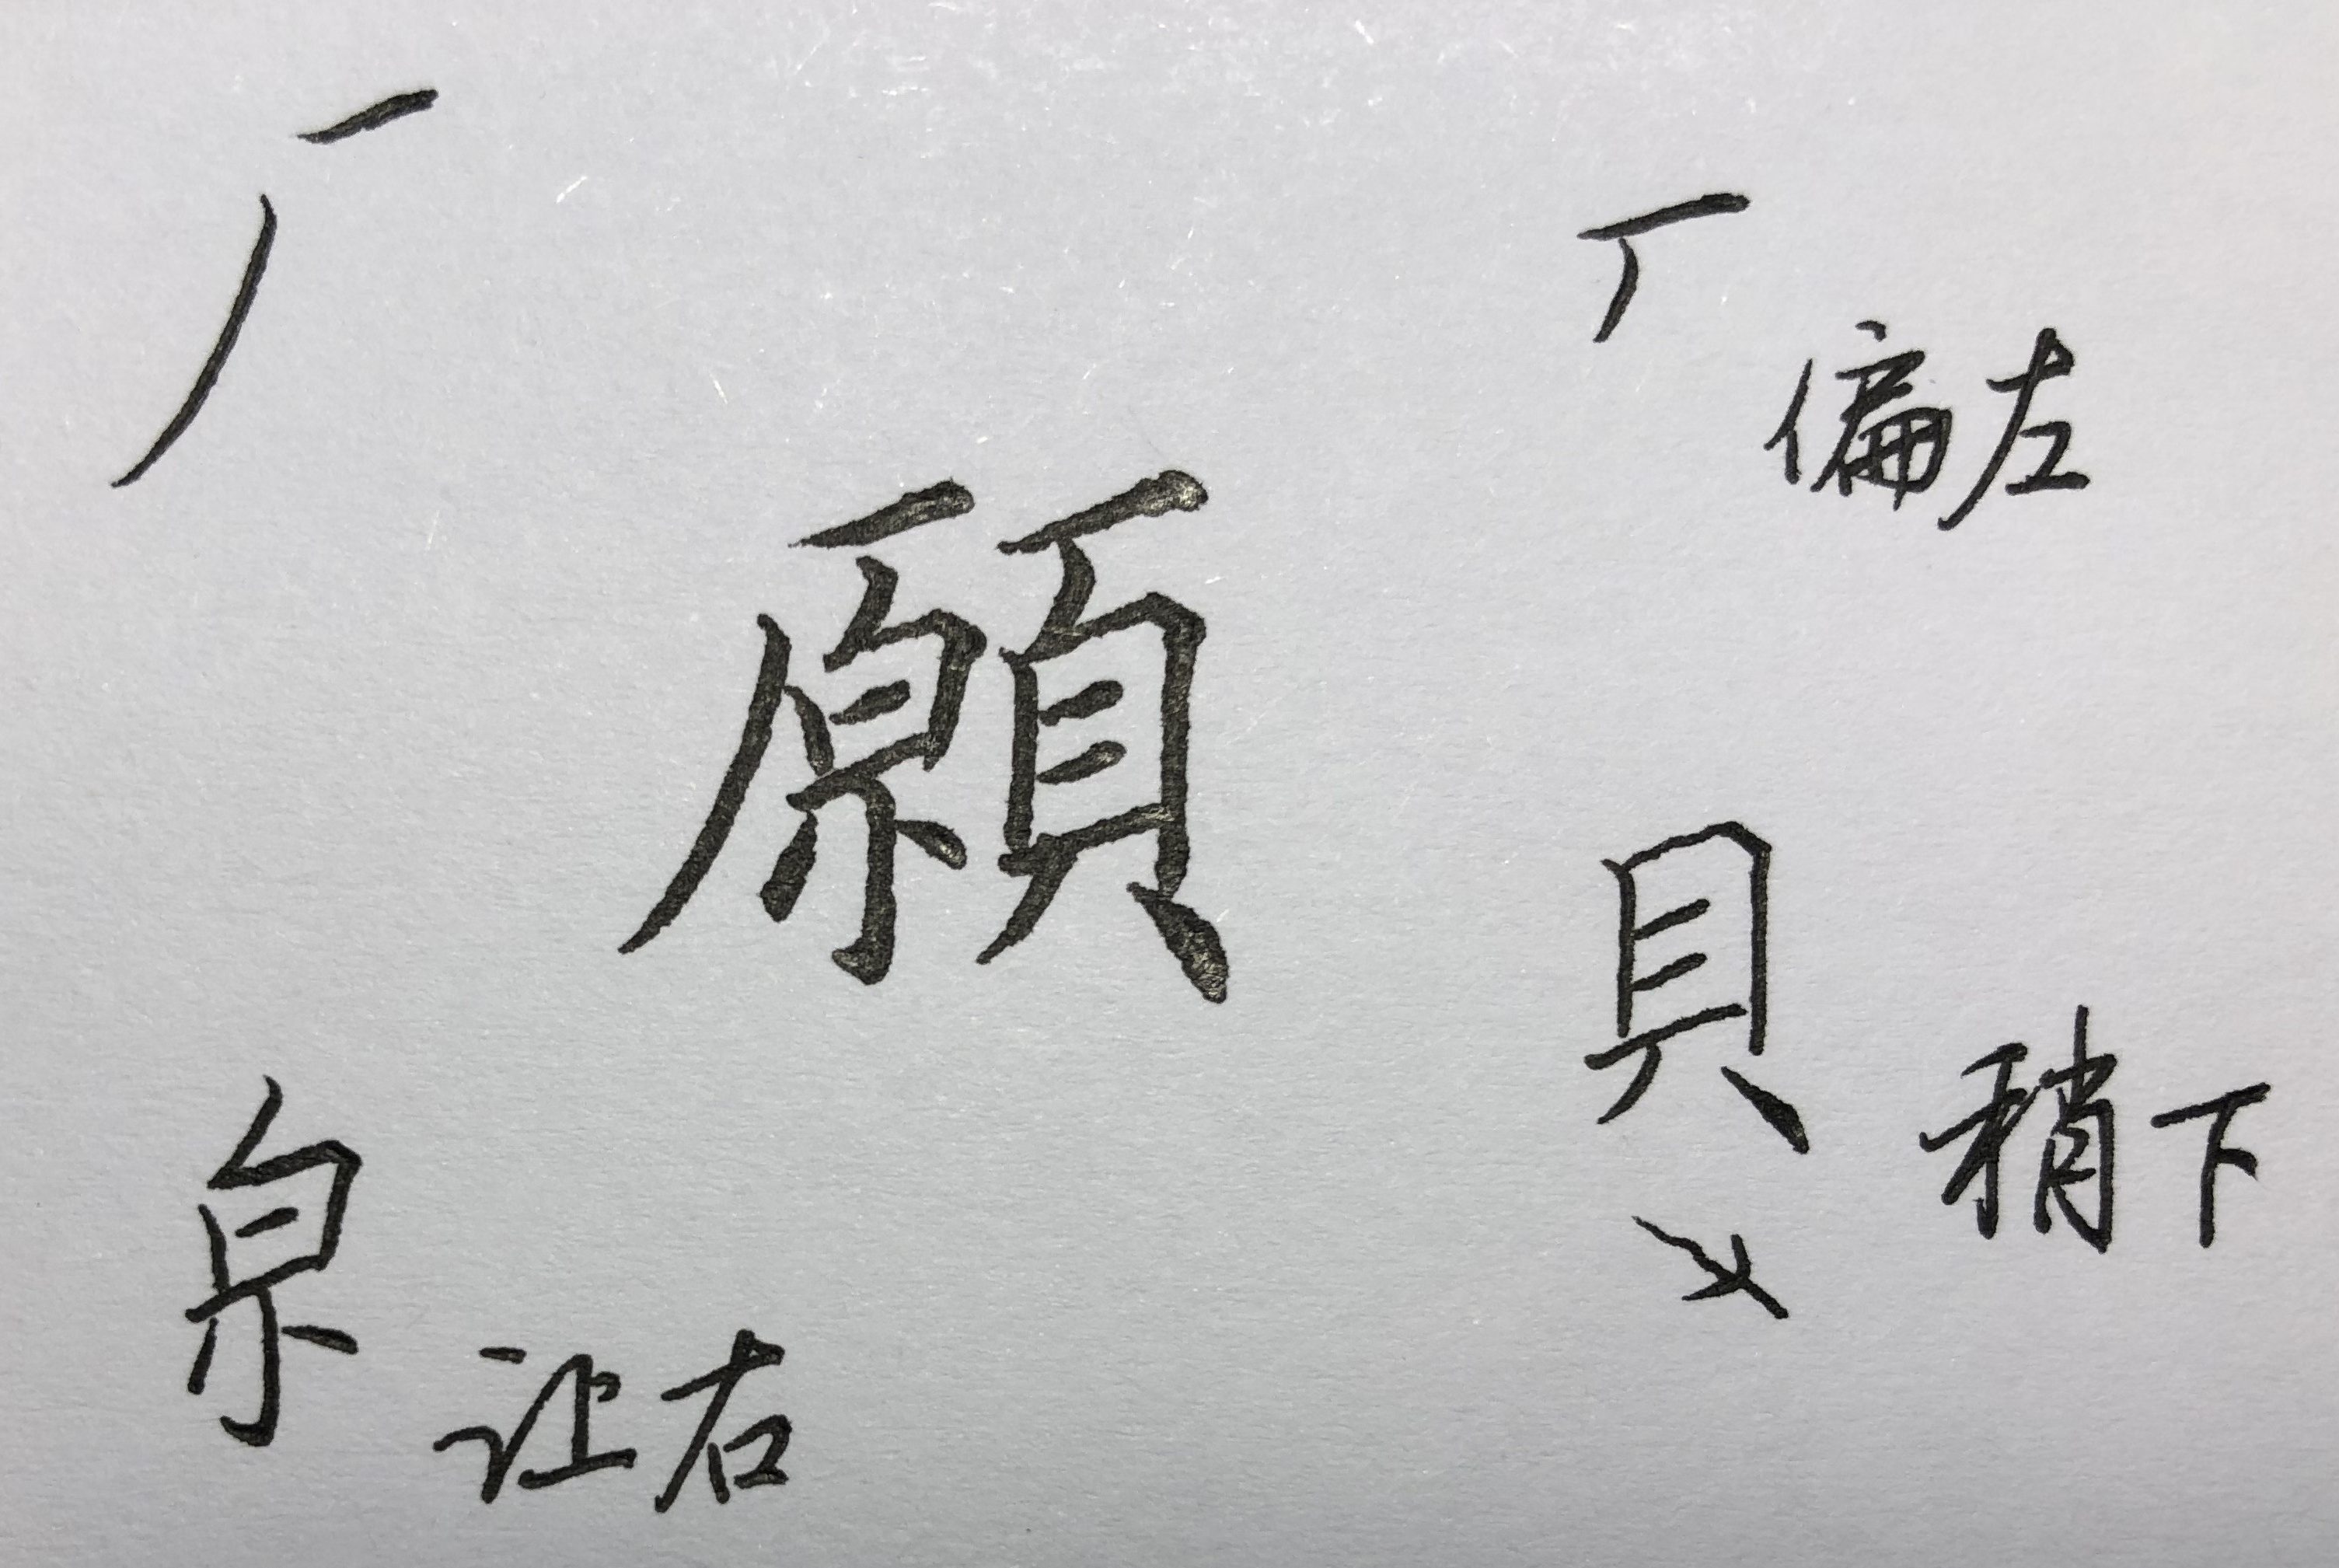 厂
偏左
願
貝
稍下
泉
让右